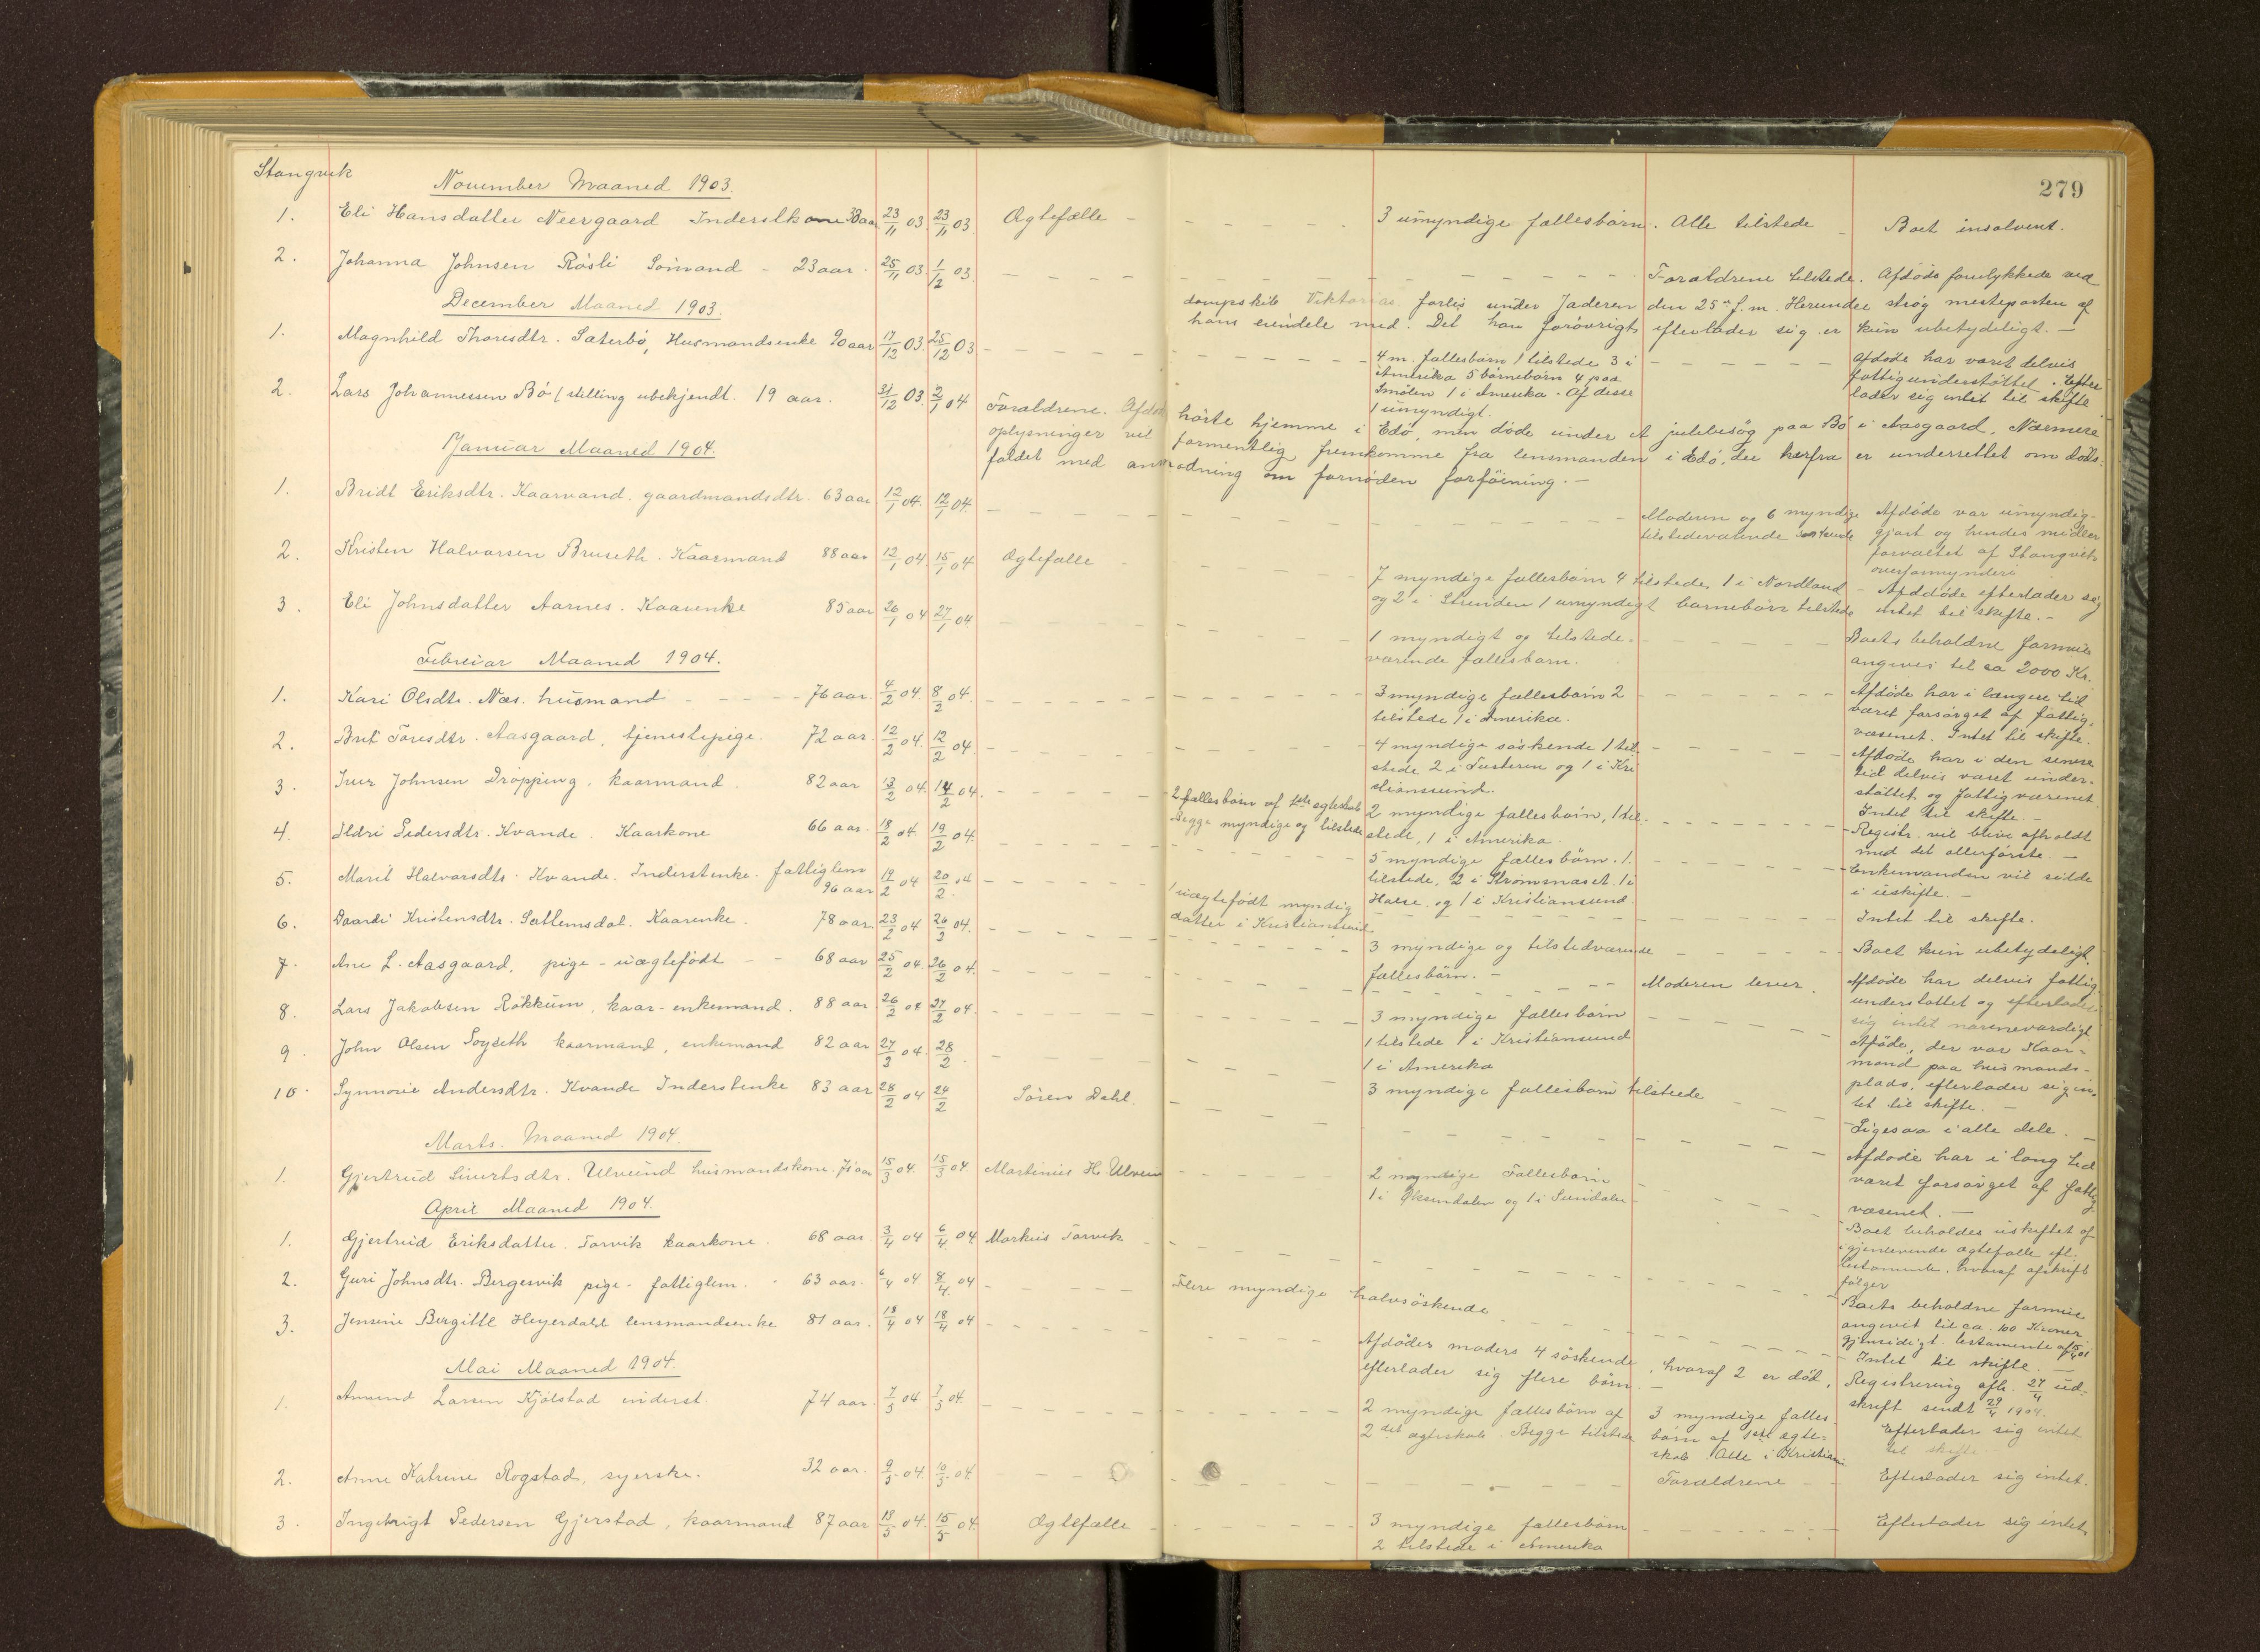 279
Stangvik
November Maaned 1903.
1. Eli Hansdatter Neergaard Inderstkone 38 aar 23/11 03. 23/11 03 Ægtefælle - 3 umyndige fællesbörn. Alle tilstede - Boet insolvent.
2. Johanna Johnsen Rösli Sömand - 23 aar. 25/11 03. 1/12 03. Forældrene tilstede. Afdöde forulykkede ved
dampskib Viktorias forlis under Jæderen den 25de f.m. Herunder strög mesteparten af
hans eiendele med. Det han forövrigt efterlader sig er kun ubetydeligt. -
December Maaned 1903.
1. Magnhild Thoresdtr. Sæterbö, Husmandsenke 90 aar 17/12 03. 25/12 03 4 m. fællesbörn 1 tilstede 3 i Afdöde har været delvis
Amerika 5 börnebörn 4 paa fattigunderstöttet. Efter
Smölen 1 i Amerika. Af disse lader sig intet til skifte
1 umyndigt.
2. Lars Johannessen Bö (stilling ubekjendt. 19 aar. 31/12 03. 2/1 04 Forældrene. Afdöde hörte hjemme i Edö, men döde under et julebesög paa Bö i Aasgaard. Nærmere
oplysninger vil formentlig fremkomme fra lensmanden i Edö, der herfra er underrettet om döds-
faldet med anmodning om fornöden forföining. -
Januar Maaned 1904.
1. Bridt Eriksdtr. Kaarvand. gaardmandsdtr. 63 aar 12/1 04. 12/1 04. Moderen og 6 myndige Afdöde var umyndig-
tilstedeværende söskende gjort og hendes midler
forvaltet af Stangvik
overformynderi
2. Kristen Halvorsen Bruseth. Kaarmand 88 aar 12/1 04. 15/1 04 Ægtefælle 7 myndige fællesbörn 4 tilstede, 1 i Nordland - Afdöde efterlader sig
og 2 i Strinden 1 umyndigt barnebarn tilstede intet til skifte. -
3. Eli Johnsdatter Aarnes. Kaarenke 85 aar 26/1 04 27/1 04. 1 myndigt og tilstede- Boets beholdne formue
værende fællesbarn. angives til ca 2000 Kr.
Februar Maaned 1904.
1. Kari Olsdtr. Næs. husmand - 76 aar. 4/2 04. 8/2 04. 3 myndige fællesbörn 2 Afdöde har i længere tid
tilstede 1 i Amerika. været forsörget af fattig-
væsenet. Intet til skifte.
2. Brit Toresdtr. Aasgaard, tjenestepige. 72 aar. 12/2 04. 12/2 04. 4 myndige söskende 1 til- Afdöde har i den senere
stede 2 i Tusteren og 1 i Kri tid delvis været under-
stianssund. støttet og fattigvæsenet
Intet til skifte. -
3. Iver Johnsen Dröpping, kaarmand. 82 aar 13/2 04. 14/2 04. 2 fællesbörn af 1ste ægteskab 2 myndige fællesbörn, 1 til- Registr. vil blive afholdt
Begge myndige og tilstede stede, 1 i Amerika. med det allerförste. -
4. Ildri Pedersdtr. Kvande. Kaarkone 66 aar. 18/2 04 19/2 04. 5 myndige fællesbörn. 1. Enkemanden vil sidde
tilstede, 2 i Strömsnæset. 1 i i uskifte. -
Halse, og 1 i Kristiansund.
5. Marit Halvorsdtr. Kvande. Inderstenke. fattiglem
96 aar 19/2 04 20/2 04 1 uægtefödt myndig Intet til skifte.
datter i Kristiansund.
6. Daardi Kristensdtr. Sættemsdal. Kaarenke. 78 aar. 23/2 04 26/2 04. 3 myndige og tilstedværende Boet kun ubetydeligt.
fællesbörn. -
7. Ane L. Aasgaard, pige - uægtefödt - - 68 aar 25/2 04. 26/2 04. Moderen lever. Afdöde har delvis fattig
understöttet og efterlader
sig intet nævneværdigt
8. Lars Jakobsen Rökkum, kaar-enkemand. 88 aar 26/2 04 27/2 04. 3 myndige fællesbörn Afdöde, der var Kaar-
1 tilstede 1 i Kristiansund mand paa husmands-
1 i Amerika plads, efterlader sig in-
tet til skifte. -
9. John Olsen Söyseth kaarmand, enkemand 82 aar 27/3 04. 28/2. 3 myndige fællesbörn tilstede Ligesaa i alle dele. -
10. Synnove Andersdtr. Kvande Inderstenke 83 aar 28/2 04 24/2 Sören Dahl. Afdöde har i lang tid
været forsörget af fattig-
væsenet. -
Marts. Maaned 1904.
1. Gjertrud Sivertsdtr. Ulvund husmandskone. 71 aar 15/3 04. 15/3 04. Martinus H. Ulvun 2 myndige Fællesbörn Boet beholdes uskiftet af
1 i Öksendalen og 1 i Sundalen igjenlevende ægtefælle efl.
testamente, hvoraf afskrift
fölger
April Maaned 1904.
1. Gjertrud Eriksdatter. Torvik kaarkone. 68 aar. 3/4 04 6/4 04 Markus Torvik Boets beholdne formue
angivet til ca. 100 Kroner
gjensidigt testamente af
2. Guri Johnsdtr. Bergesvik pige - fattiglem. 63 aar. 6/4 04 8/4 04 Flere myndige halvsöskende Intet til skifte. -
3. Jensine Birgitte Heyerdahl lensmandsenke 81 aar. 18/4 04 18/4 04 Afdödes moders 4 söskende, hvoraf 2 er död, Registrering afh. 27/4 ud-
efterlader sig flere börn. - skrift sendt 29/4 1904.
Mai Maaned 1904.
1. Amund Larsen Kjölstad inderst. 74 aar. 7/5 04 7/5 04. 2 myndige fællesbörn af 3 myndige fælles- Efterlader sig intet
2det ægteskab. Begge tilstede börn af 1ste ægte- til skifte.
skab. Alle i Kristiani
2. Anne Katrine Rogstad, syerske. 32 aar. 9/5 04. 10/5 04. Forældrene - Efterlader sig intet.
3. Ingebrigt Pedersen Gjerstad, kaarmand 87 aar 13/5 04. 15/5 04. Ægtefælle 3 myndige fællesbörn Efterlader sig intet.
2 tilstede i Amerika